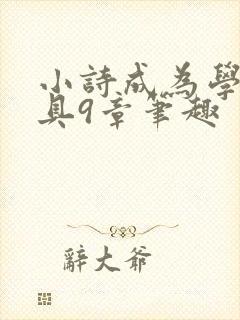 小詩成為學
具9章筆趣
辭大爺